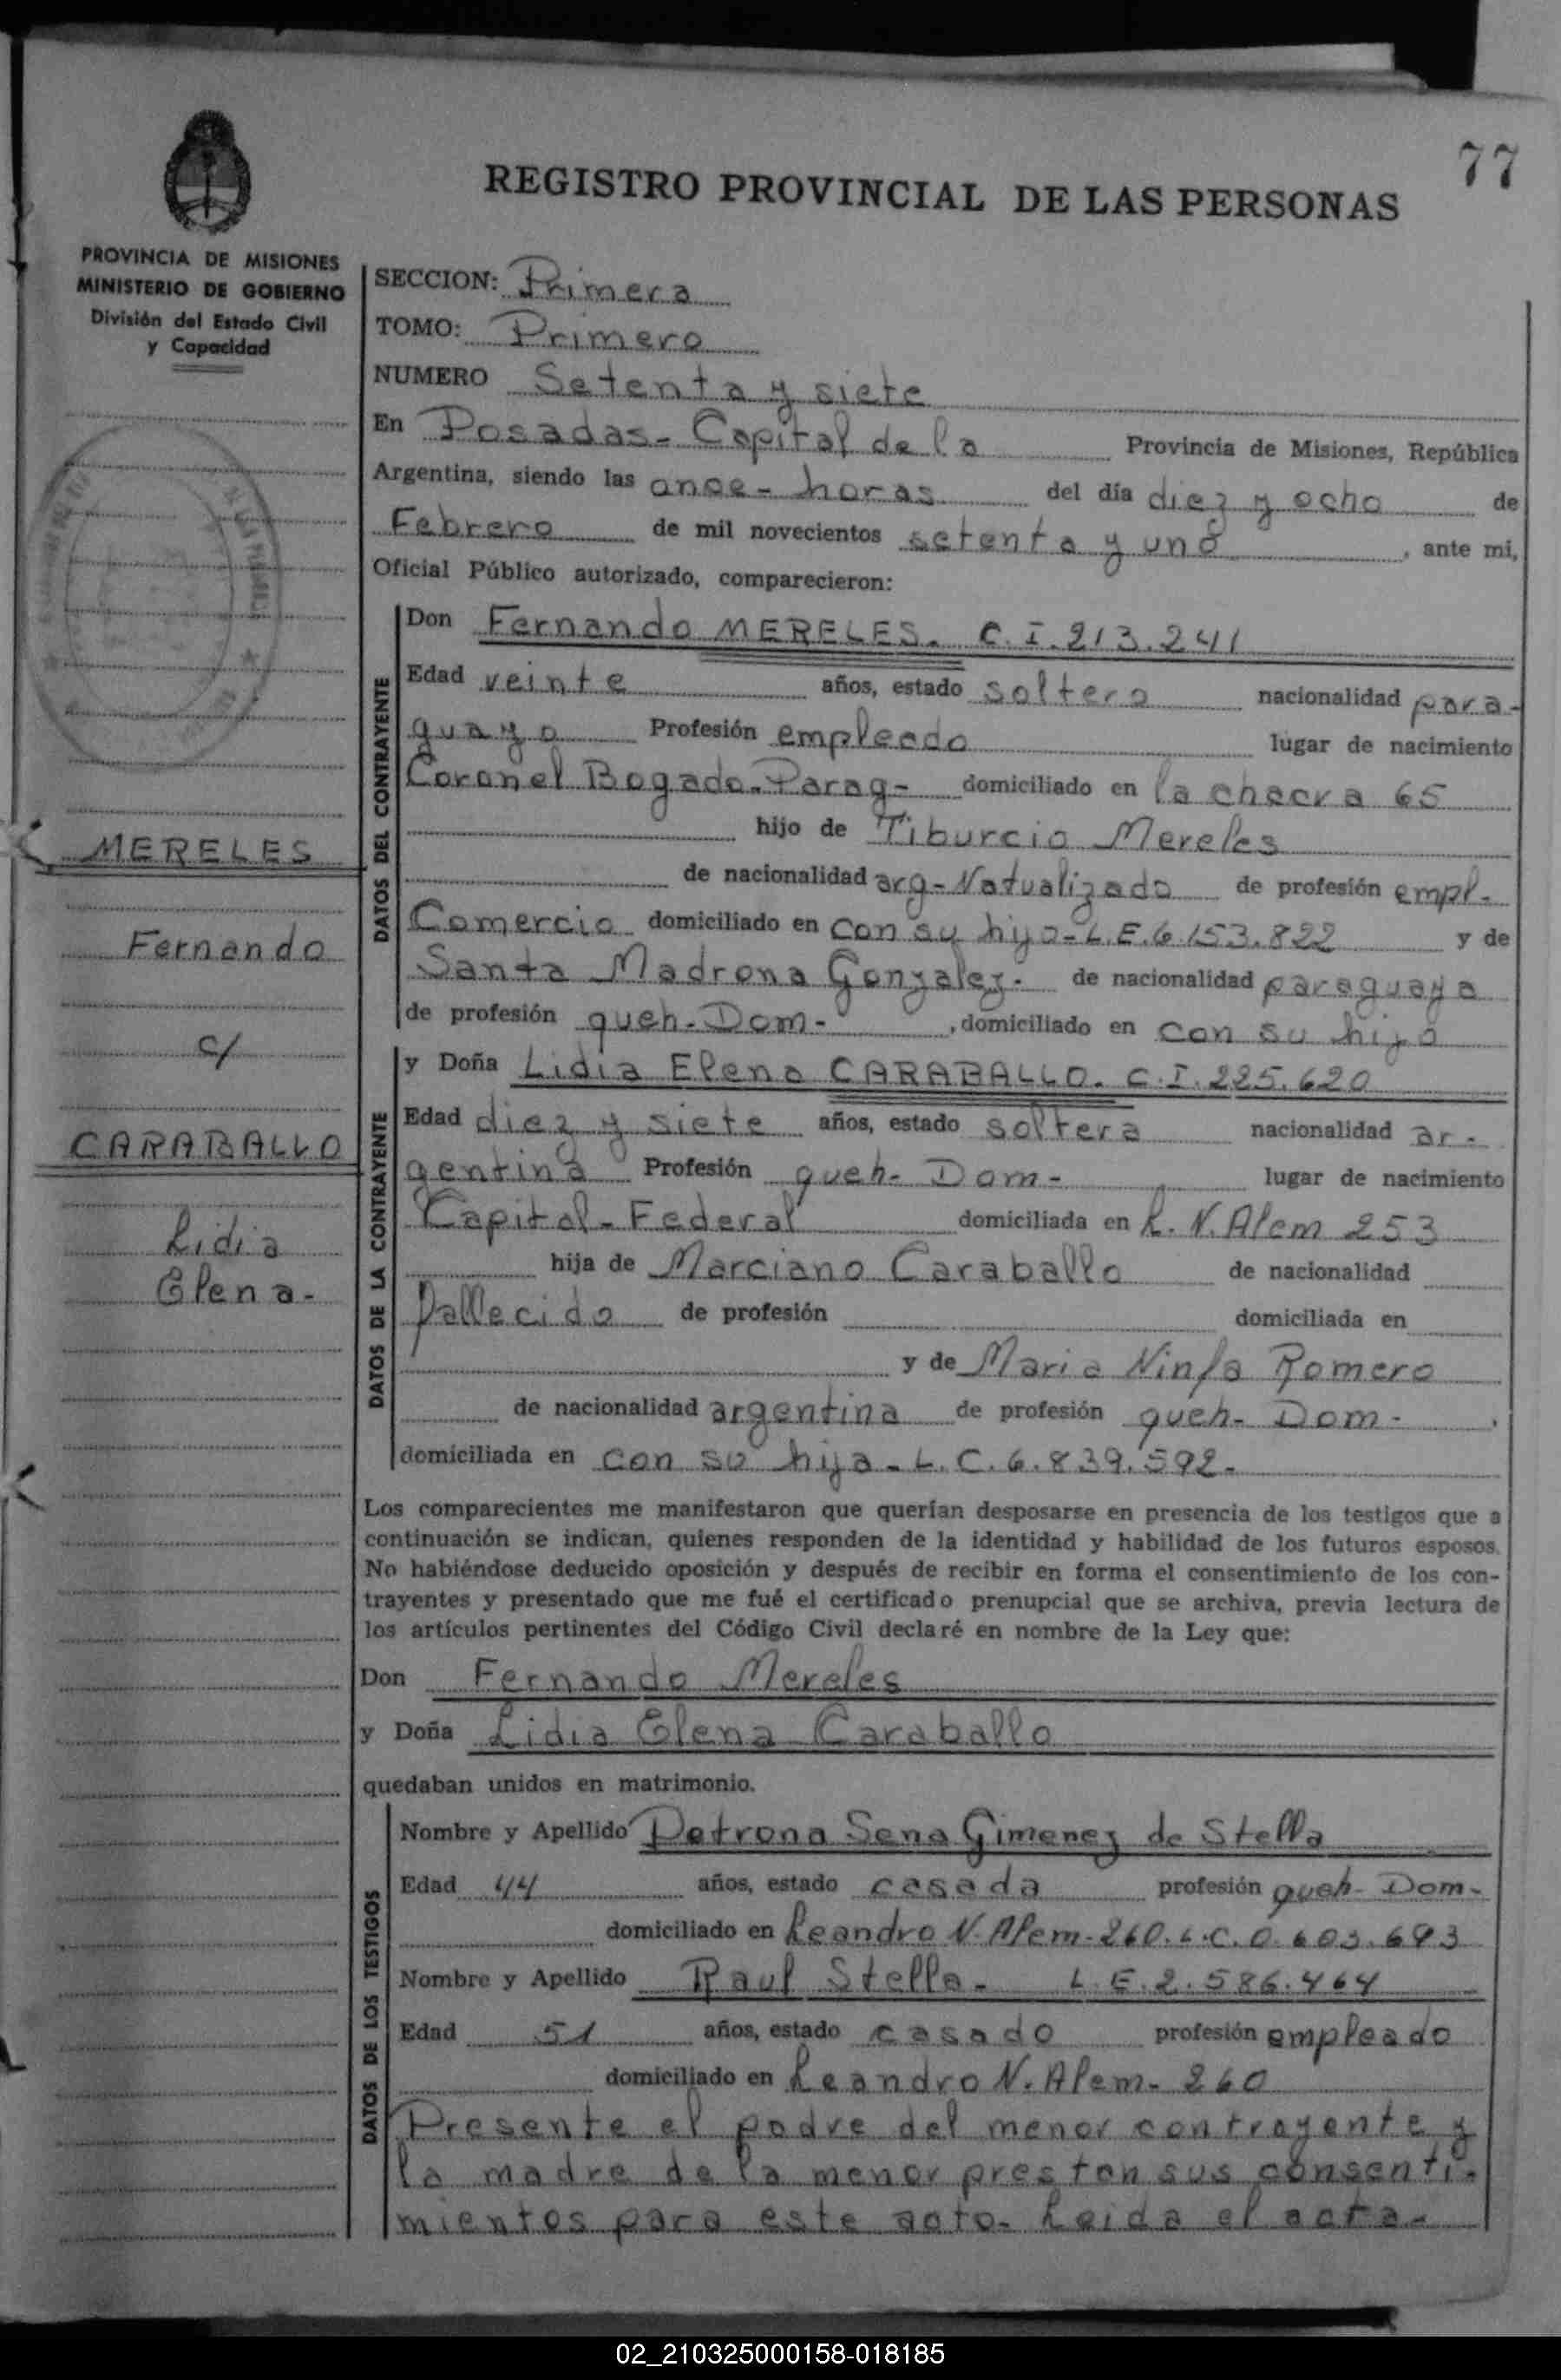 77
REGISTRO PROVINCIAL DE LAS PERSONAS
PROVINCIA DE MISIONES
MINISTERIO DE GOBIERNO
División del Estado Civil
y Capacidad
MERELES
Fernando
c/
CARABALLO
Lidia
Elena-
SECCION: Primera
TOMO: Primero
NUMERO Setenta y siete
En Posadas- Capital de la Provincia de Misiones, República
Argentina, siendo las once- horas del día diez y ocho de
Febrero de mil novecientos setenta y uno, ante mi,
Oficial Público autorizado, comparecieron:
DATOS DEL CONTRAYENTE
Don Fernando MERELES. C.I.213.241
Edad veinte años, estado soltero nacionalidad para-
guayo Profesión empleado lugar de nacimiento
Coronel Bogado-Parag- domiciliado en la chacra 65
hijo de Tiburcio Mereles
de nacionalidad arg-Natualizado de profesión empl-
Comercio domiciliado en con su hijo-L.E.6.153.822 y de
Santa Madrona Gonzalez- de nacionalidad paraguaya
de profesión queh-Dom-, domiciliado en con su hijo
DATOS DE LA CONTRAYENTE
y Doña Lidia Elena CARABALLO. C.I.225.620
Edad diez y siete años, estado soltera nacionalidad ar-
gentina Profesión queh- Dom- lugar de nacimiento
Capital-Federal domiciliada en L.N.Alem 253
hija de Marciano Caraballo de nacionalidad
fallecido de profesión domiciliada en
y de Maria Ninfa Romero
de nacionalidad argentina de profesión queh- Dom-,
domiciliada en con su hija-L.C.6.839.592-
Los comparecientes me manifestaron que querían desposarse en presencia de los testigos que a
continuación se indican, quienes responden de la identidad y habilidad de los futuros esposos.
No habiéndose deducido oposición y después de recibir en forma el consentimiento de los con-
trayentes y presentado que me fué el certificado prenupcial que se archiva, previa lectura de
los artículos pertinentes del Código Civil declaré en nombre de la Ley que:
Don Fernando Mereles
y Doña Lidia Elena Caraballo
quedaban unidos en matrimonio.
DATOS DE LOS TESTIGOS
Nombre y Apellido Petrona Sena Gimenez de Stella
Edad 44 años, estado casada profesión queh- Dom-
domiciliado en Leandro N.Alem-260.L.C.0.603.693
Nombre y Apellido Raul Stella- L.E.2.586.464
Edad 51 años, estado casado profesión empleado
domiciliado en Leandro N.Alem- 260
Presente el padre del menor contrayente y
la madre de la menor prestan sus consenti-
mientos para este acto- Leida el acta-
02_210325000158-018185